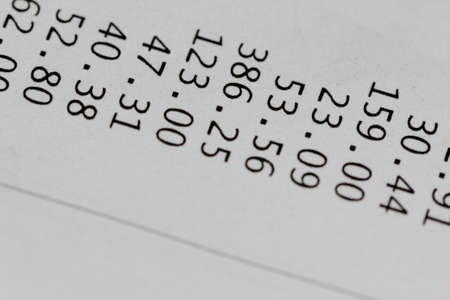 .91
30.44
159.00
23.09
53.56
386.25
123.00
47.31
40.38
52.80
62.00